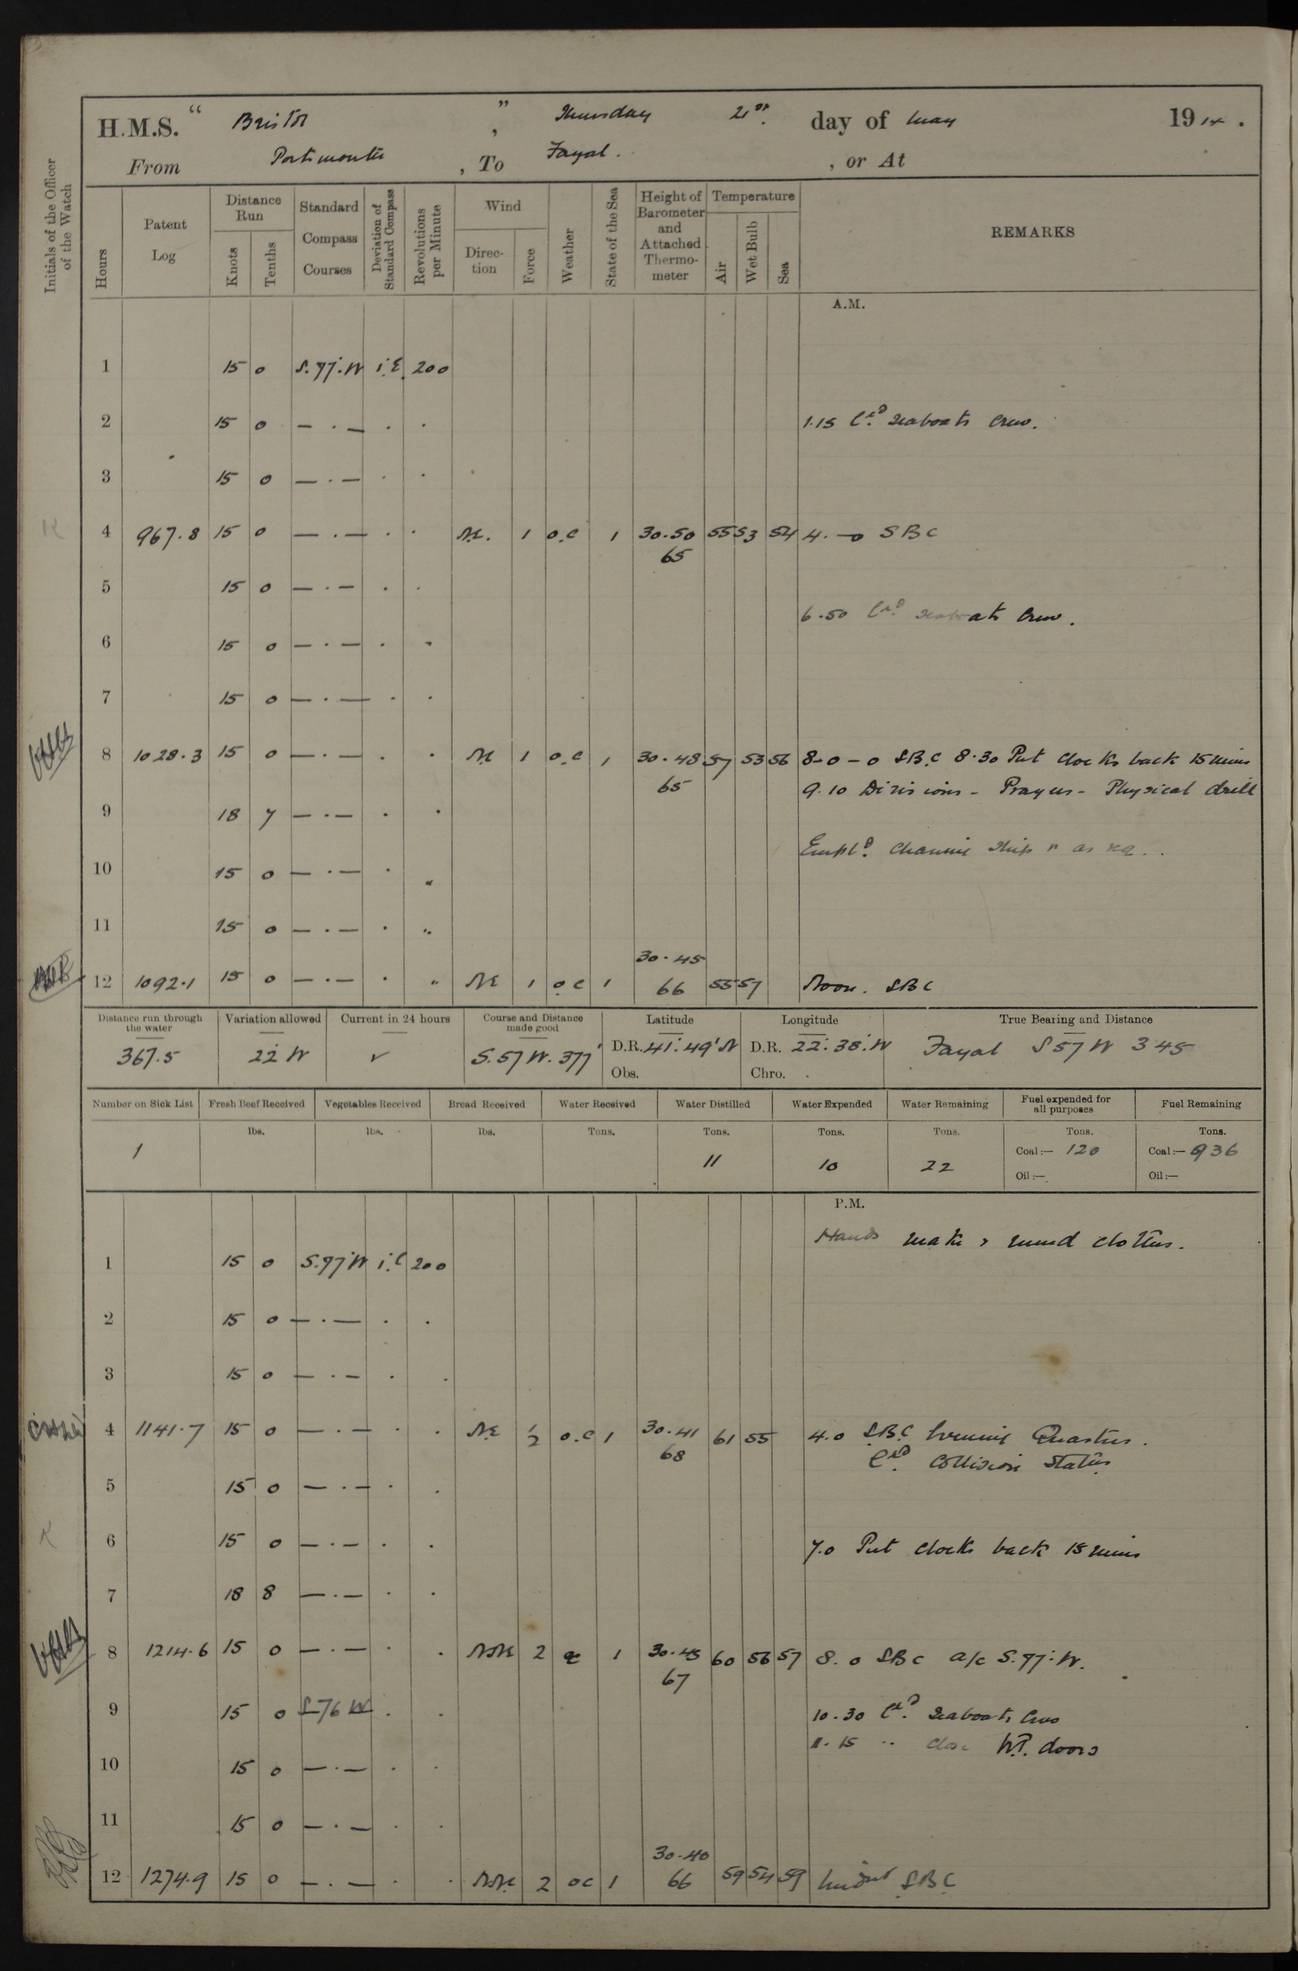 H.M.S. “ Bristol ” , Thursday 21st day of May 1914 .
From Portsmouth , To Fayal . , or At
Initials of the Officer of the Watch
Hours Patent Log Distance Run Knots Tenths Standard Compass Courses Deviation of Standard Compass Revolutions per Minute Wind Direction Force Weather State of the Sea Height of Barometer and Attached Thermometer Temperature Air Wet Bulb Sea REMARKS
A.M.
1 15 0 S.77.W 1.E. 200
2 15 0 — . — . . 1.15 Exd. Seaboats Crew.
3 15 0 — . — . .
4 967.8 15 0 — . — . . N.E. 1 o.c 1 30.50 55 53 54 4. — 0 S B C
65
5 15 0 — . — . .
6.50 Exd. Seaboats Crew.
6 15 0 — . — . .
7 15 0 — . — . .
8 1028.3 15 0 — . — . . NE 1 o.c 1 30.48 57 53 56 8–0–0 S.B.C 8.30 Put clocks back 15 mins
65 9.10 Divisions - Prayers - Physical drill
9 18 7 — . — . .
Empld. cleaning ship & as req..
10 15 0 — . — . "
11 15 0 — . — . "
30.45
12 1092.1 15 0 — . — . " NE 1 o c 1 66 55 57 Noon. S B C
Distance run through the water Variation allowed Current in 24 hours Course and Distance made good Latitude Longitude True Bearing and Distance
367.5 22 W ✓ S.57 W. 377' D.R. 41.49' N D.R. 22.38.W Fayal S 57 W 345
Obs. Chro.
Number on Sick List Fresh Beef Received Vegetables Received Bread Received Water Received Water Distilled Water Expended Water Remaining Fuel expended for all purposes Fuel Remaining
lbs. lbs. lbs. Tons. Tons. Tons. Tons. Tons. Tons.
1 11 10 22 Coal:— 120 Coal:— 936
Oil:— Oil:—
P.M.
Hands make & mend clothes.
1 15 0 S.77 W 1.E 200
2 15 0 — . — . .
3 15 0 — . — . .
4 1141.7 15 0 — . — . . NE 1/2 o.c 1 30.41 61 55 4.0 S.B.C Evening Quarters.
68 Exd. Collision Stations
5 15 0 — . — . .
6 15 0 — . — . . 7.0 Put clocks back 15 mins
7 18 8 — . — . .
8 1214.6 15 0 — . — . . NNE 2 c 1 30.45 60 56 57 8.0 S B C a/c S.77.W.
67
9 15 0 S 76 W . . 10.30 Exd. Seaboats Crew
11.15 " close W.T. doors
10 15 0 — . — . .
11 15 0 — . — . .
30.40
12 1274.9 15 0 — . — . . NNE 2 o c 1 66 59 54 59 Midnt S.B.C